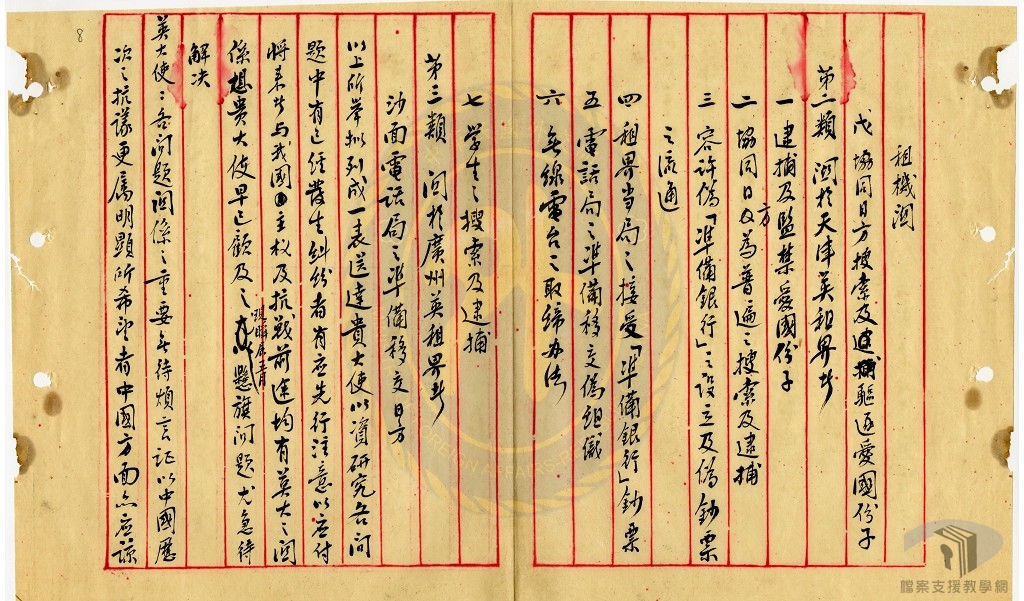 租機關
戊 協同日方搜索及逮捕驅逐愛國份子
第二類 関於天津英租界者
一 逮捕及監禁愛國份子
二 協同日方為普遍之搜索及逮捕
三 容許偽「準備銀行」之設立及偽鈔票
之流通
四 租界当局之接受「準備銀行」鈔票
五 電話局之準備移交偽組織
六 無線電台之取締办法
七 学生之搜索及逮捕
第三類 関於廣州英租界者
沙面電话局之準備移交日方
以上所举拟列成一表送達貴大使以資研究各问
题中有已经發生糾紛者有应先行注意以应付
将来者与我國主权及抗戰前途均有莫大之関
係想貴大使早已顧及之懸旗问题尤急待
解决
英大使：各问题関係之重要無待煩言証以中國歷
次之抗議更属明顯所希望者中國方面亦应諒
8
檔案支援教學網